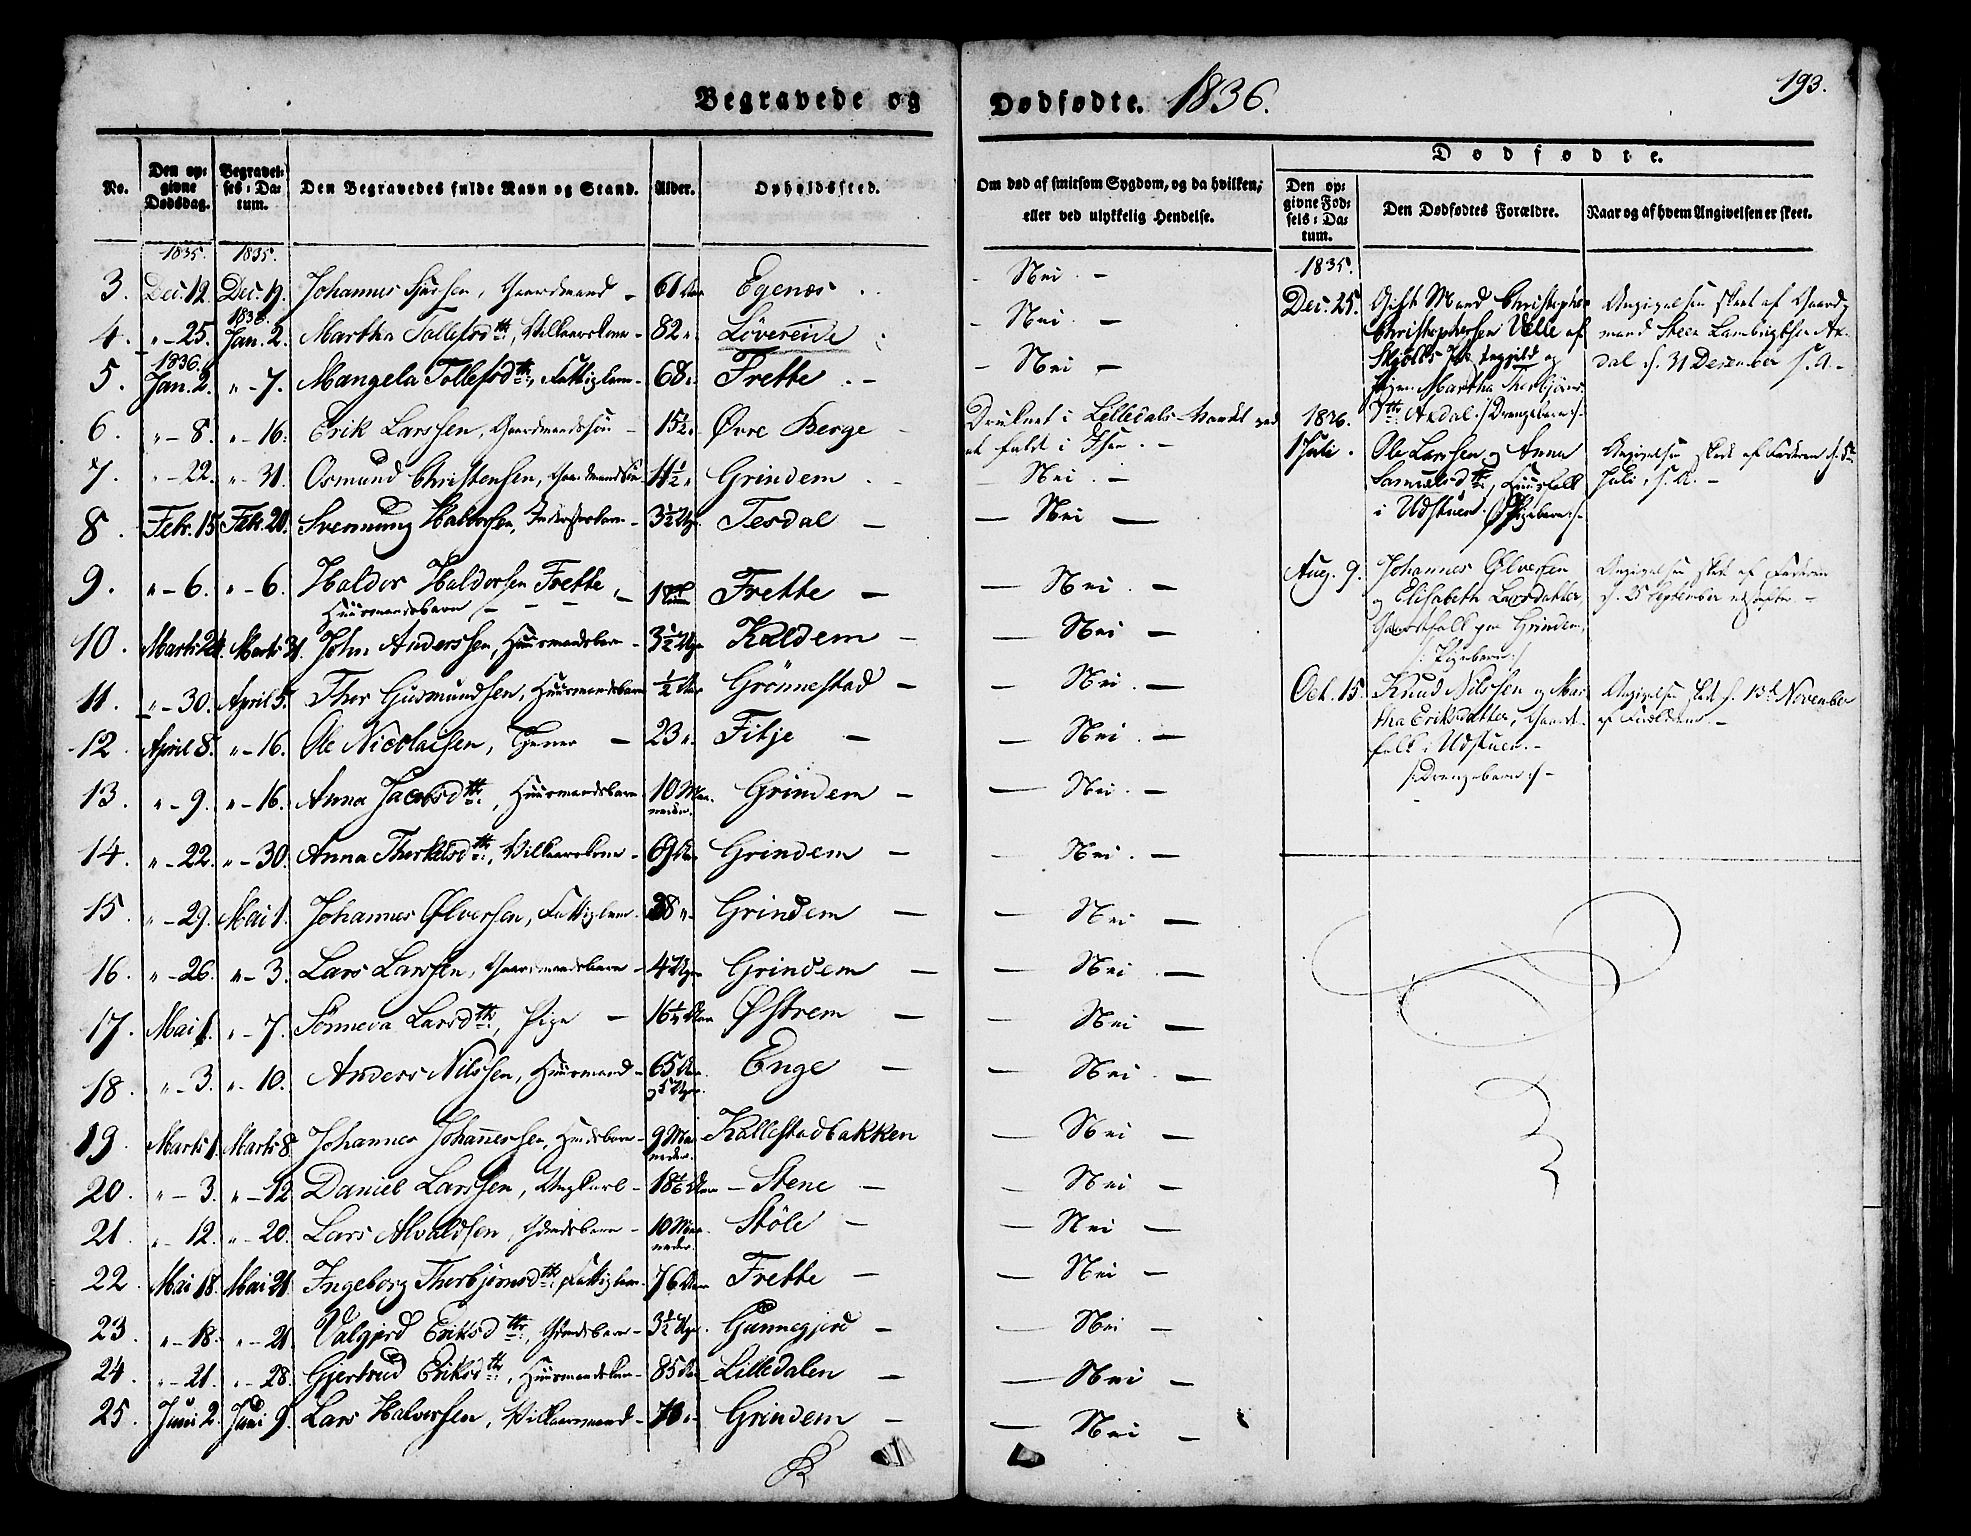 Begravede og Dødfødte. 1836.
193.
No. Den opgivne Dødsdag. Begravelses-Datum. Den Begravedes fulde Navn og Stand. Alder. Opholdssted. Om død af smitsom Sygdom, og da hvilken; eller ved ulykkelig Hendelse.
1835. 1835.
3. Dec. 12. Dec. 19. Johannes Sjursen, Gaardmand – 61 Aar Egenæs. – Nei. –
1836.
4. „ – 25. Jan. 2. Martha Tollefsdtr, Vilkaarskone – 82 „ Løvereide – Nei. –
1836.
5. Jan. 2. „ – 7. Mangela Tollefsdtr, Fattiglem – 68 „ Frette. – – Nei –
6. „ – 8. „ – 16. Erik Larssen, Gaardmandssøn – 15½ „ Øvre Berge – Druknet i Lilledals-Vandet ved at falde i Isen. –
7. „ – 22. „ – 31. Osmund Christensen, Gaardmandssøn 11½ „ Grindem. – Nei. –
8. Febr. 15 Febr. 20. Svennung Halvorsen, Inderstebarn – 3½ Uge. Tesdal – – Nei –
9. „ – 6. „ – 6. Haldor Haldorsen Frette, Huusmandsbarn – 1 Frette – – Nei. –
10. Marts 24. Marts 31. John Anderssen, Huusmandsbarn – 3½ Uge Kaldem – – Nei –
11. „ – 30. April 5. Thor Gudmundsen, Huusmandsbarn ½ Aar Grønnestad – – Nei. –
12. April 8. „ – 16. Ole Nicolaisen, Tjener – 23 „ Fitje – – Nei. –
13. „ – 9. „ – 16. Anna Jacobsdtr, Huusmandsbarn 10 Maaneder. Grindem – – Nei. –
14. „ – 22. „ – 30. Anna Thorkelsdtr, Vilkaarskone – 69 Aar Grindem – – Nei. –
15. „ – 29. Mai 1. Johannes Ølversen, Fattiglem 28 „ Grindem – – Nei –
16. „ – 26. „ – 3. Lars Larssen, Gaardmandsbarn – 4 Uger Grindem – – Nei. –
17. Mai 1. „ – 7. Sønneva Larsdtr, Pige – 16½ Aar Østrem – – Nei –
18. „ – 3. „ – 10. Anders Nilssen, Huusmand – 65 Aar og 5 Uger. Enge – – Nei. –
19. Marts 1. Marts 8. Johannes Johannessen, Huusbarn – 9 Maaneder. Kallestadbakken – Nei –
20. „ – 3. „ – 12 Daniel Larssen, Ungkarl – 18½ Aar – Stene – – Nei –
21. „ – 12. „ – 20. Lars Alvaldsen, Gaardsbarn – 10 Maaneder. Støle – – Nei –
22. Mai 18. Mai 21. Ingeborg Thorbjørnsdtr, Fattiglem – 76 Aar Frette – – Nei –
23. „ – 18. „ – 21. Valgjerd Eriksdtr, Gaardsbarn – 3½ Uge. Gunnegjerd – – Nei –
24. „ – 21. „ – 28. Gjertrud Eriksdtr, Huusmandskone – 85 Aar Lilledalen – – Nei –
25. Juni 2. Juni 9. Lars Halversen, Vilkaarsmand – 70 „ – Grindem – – Nei –
Dødfødte.
Den opgivne Fødsels-Datum. Den Dødfødtes Forældre. Naar og af hvem Angivelsen er skeet.
1835.
Dec. 25. Gift Mand Christopher Christophersen Velle af Skjolds Præstegjeld og Pigen Martha Thorbjørnsdtr Axdal /: Drengebarn :/ – Angivelsen skeet af Gaardmand Steen Lambrigtsen Axdal d. 31 Desember s. A. –
1836.
1 Juli. Ole Larssen og Anna Samuelsdtr, Huusfolk i Udstuen. /: Pigebarn :/ – Angivelsen skede af Faderen d. 5te Juli, s. A. –
Aug. 9. Johannes Ølversen og Elisabeth Larsdatter, Gaardfolk paa Grindem, /: Pigebarn :/ Angivelsen skede af Faderen d. 25 September
Oct. 15. Knud Nilssen og Martha Eriksdatter, Gaardfolk i Udstuen. – /: Drengebarn :/ – Angivelsen skede d. 13de November af Forældrene –